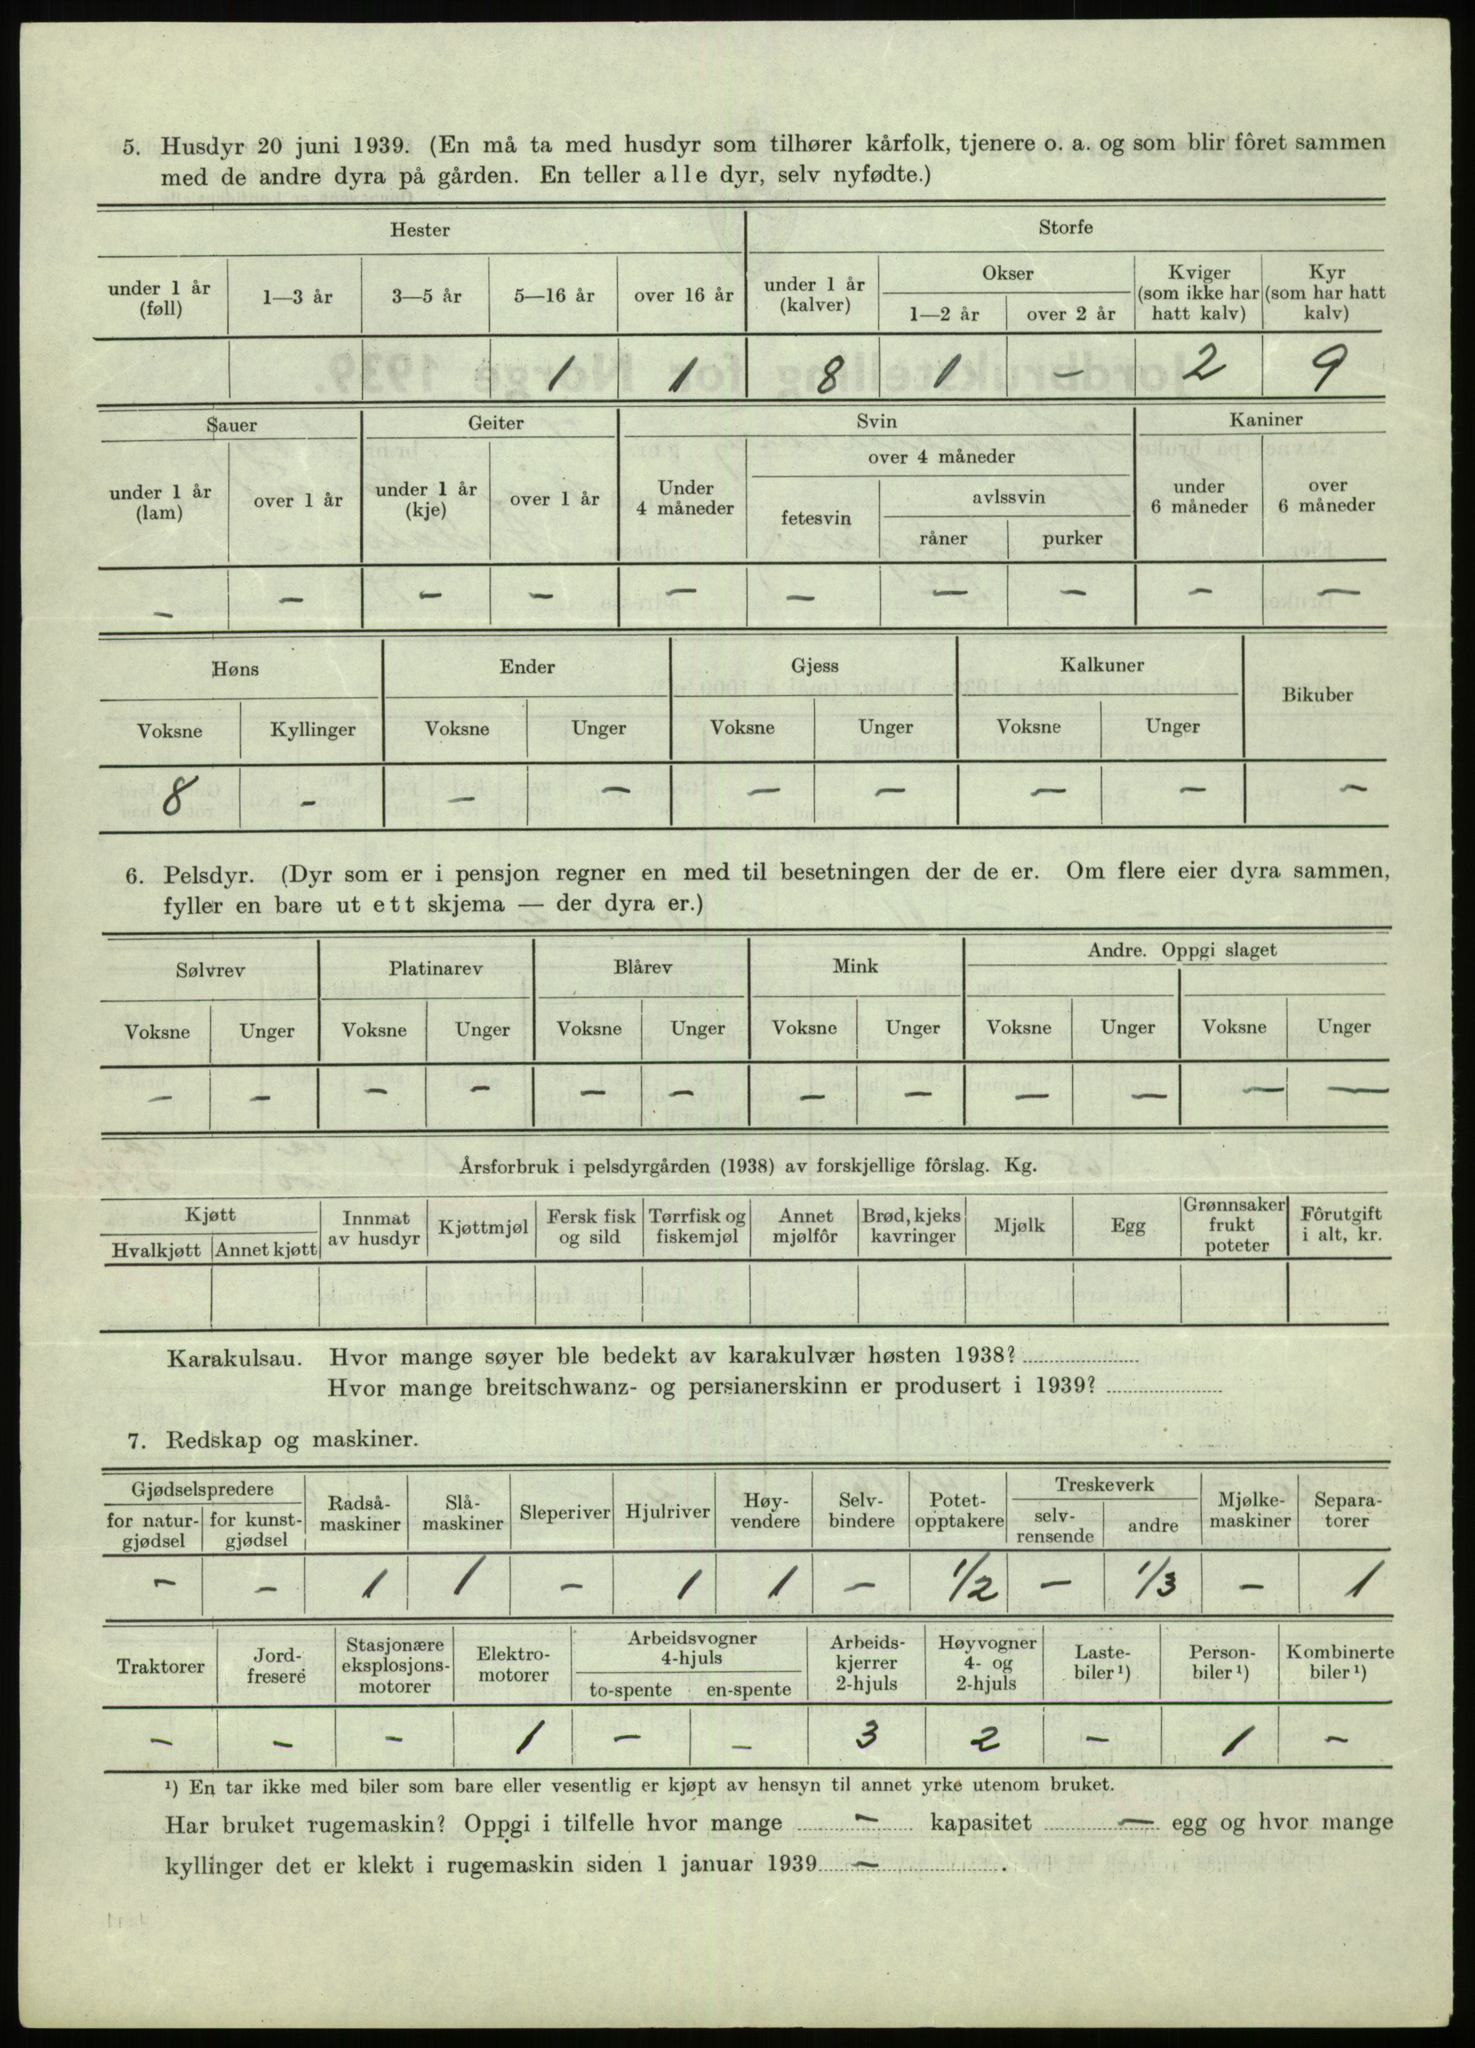 5. Husdyr 20 juni 1939. (En må ta med husdyr som tilhører kårfolk, tjenere o. a. og som blir fôret sammen
med de andre dyra på gården. En teller alle dyr, selv nyfødte.)
Hester Storfe
under 1 år (føll) 1—3 år 3—5 år 5—16 år over 16 år under 1 år (kalver) Okser 1—2 år over 2 år Kviger (som ikke har hatt kalv) Kyr (som har hatt kalv)
1 1 8 1 – 2 9
Sauer Geiter Svin Kaniner
under 1 år (lam) over 1 år under 1 år (kje) over 1 år Under 4 måneder over 4 måneder fetesvin avlssvin råner purker under 6 måneder over 6 måneder
– – – – – – – – – –
Høns Ender Gjess Kalkuner Bikuber
Voksne Kyllinger Voksne Unger Voksne Unger Voksne Unger
8 – – – – – – – –
6. Pelsdyr. (Dyr som er i pensjon regner en med til besetningen der de er. Om flere eier dyra sammen,
fyller en bare ut ett skjema — der dyra er.)
Sølvrev Platinarev Blårev Mink Andre. Oppgi slaget
Voksne Unger Voksne Unger Voksne Unger Voksne Unger Voksne Unger Voksne Unger
– – – – – – – – – – – –
Årsforbruk i pelsdyrgården (1938) av forskjellige fôrslag. Kg.
Kjøtt Hvalkjøtt Annet kjøtt Innmat av husdyr Kjøttmjøl Fersk fisk og sild Tørrfisk og fiskemjøl Annet mjølfôr Brød, kjeks kavringer Mjølk Egg Grønnsaker frukt poteter Fôrutgift i alt, kr.
Karakulsau. Hvor mange søyer ble bedekt av karakulvær høsten 1938?
Hvor mange breitschwanz- og persianerskinn er produsert i 1939?
7. Redskap og maskiner.
Gjødselspredere for natur-gjødsel for kunst-gjødsel Radså-maskiner Slå-maskiner Sleperiver Hjulriver Høy-vendere Selv-bindere Potet-opptakere Treskeverk selv-rensende andre Mjølke-maskiner Separa-torer
– – 1 1 – 1 1 – 1/2 – 1/3 – 1
Traktorer Jord-fresere Stasjonære eksplosjons-motorer Elektro-motorer Arbeidsvogner 4-hjuls to-spente en-spente Arbeids-kjerrer 2-hjuls Høyvogner 4- og 2-hjuls Laste-biler ¹) Person-biler ¹) Kombinerte biler ¹)
– – – 1 – – 3 2 – 1 –
¹) En tar ikke med biler som bare eller vesentlig er kjøpt av hensyn til annet yrke utenom bruket.
Har bruket rugemaskin? Oppgi i tilfelle hvor mange – kapasitet – egg og hvor mange
kyllinger det er klekt i rugemaskin siden 1 januar 1939 – .